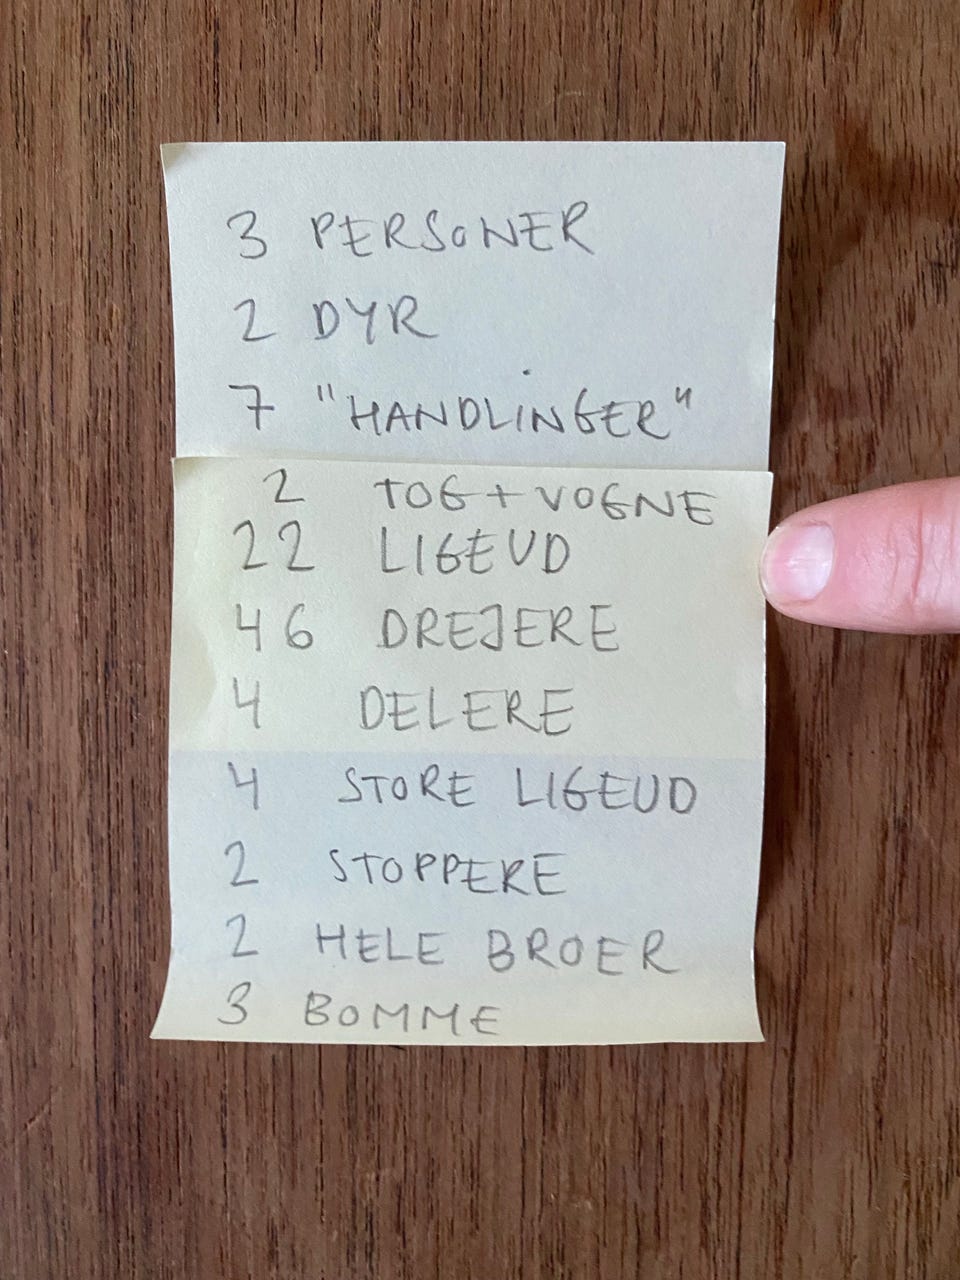 3 PERSONER
2 DYR
7 "HANDLINGER"
2 TOG + VOGNE
22 LIGEUD
46 DREJERE
4 DELERE
4 STORE LIGEUD
2 STOPPERE
2 HELE BROER
3 BOMME